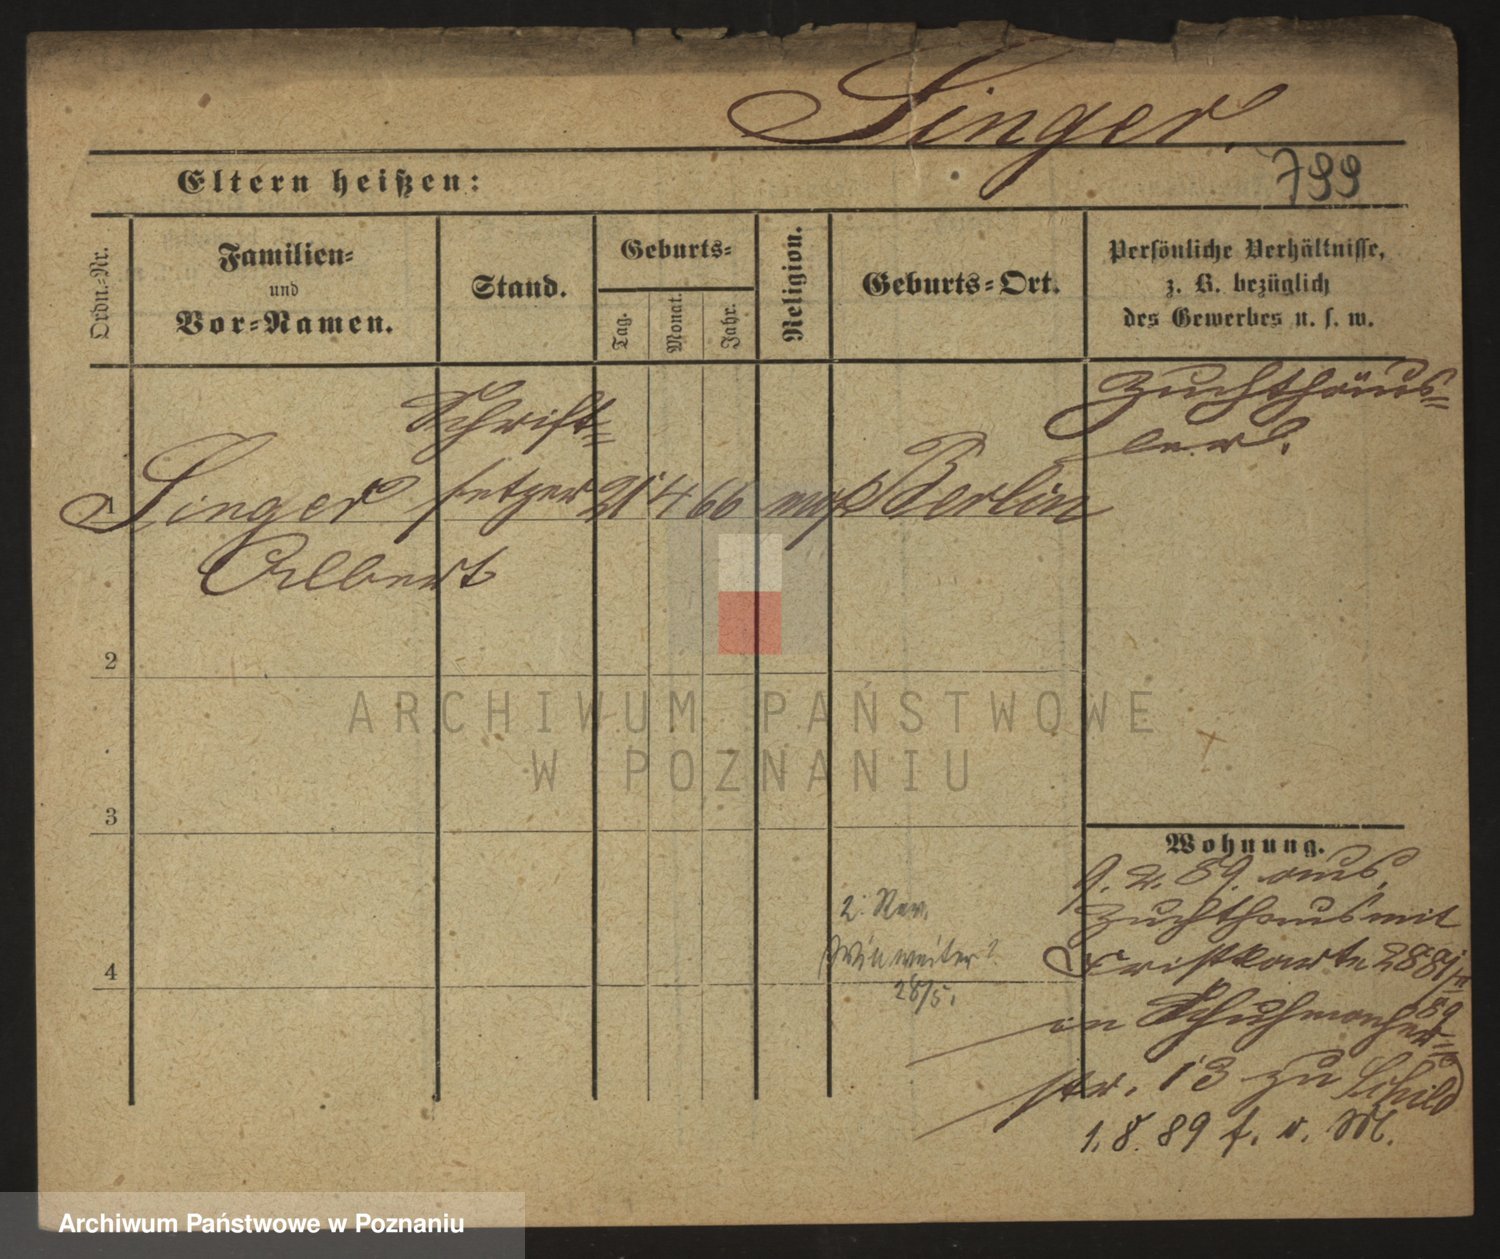 Singer.
Eltern heißen:
799
Ordn.-Nr.
Familien-
und
Vor-Namen.
Stand.
Geburts-
Tag.
Monat.
Jahr.
Religion.
Geburts-Ort.
Persönliche Verhältnisse,
z. B. bezüglich
des Gewerbes u. s. w.
Zuchthäus-
ler.
Schrift-
1 Singer setzer 21 4 66 mos Berlin
Albert
2
ARCHIWUM PAŃSTWOWE
W POZNANIU
3
Wohnung.
9. 2. 89. aus
Zuchthaus mit
Fristkarte 2881/II
89
in Schuhmacher-
str. 13 zu Schild
1. 8. 89 f. v. M.
2. Rev.
weiter?
28/5.
4
Archiwum Państwowe w Poznaniu